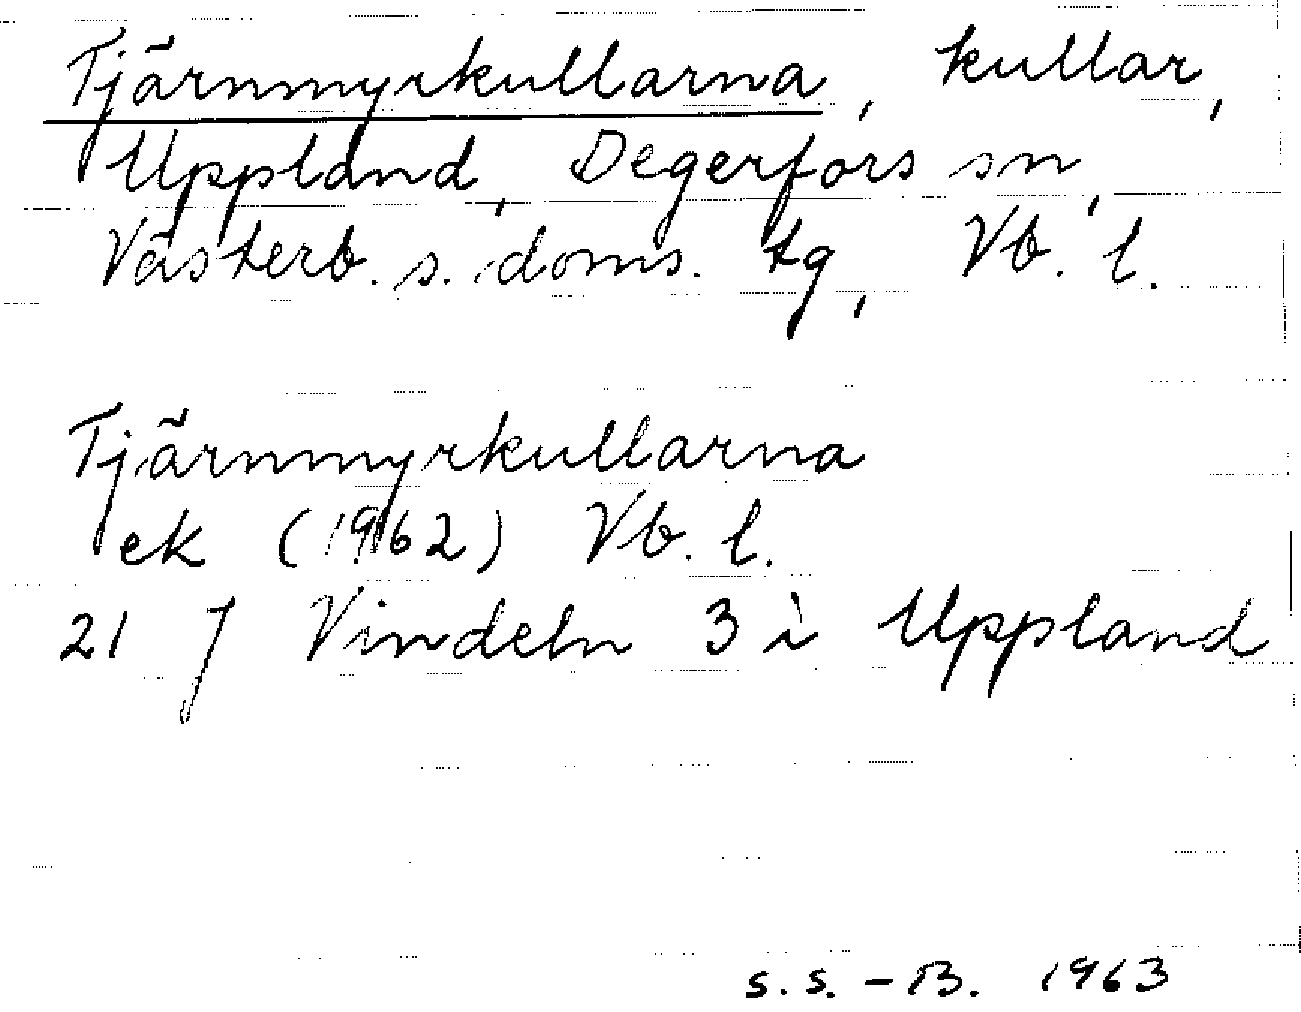 Tjärnmyrkullarna, kullar,
Uppland, Degerfors sn,
Västerb. s. doms. tg, Vb. l.
Tjärnmyrkullarna
ek (1962) Vb. l.
21 J Vindeln 3 i Uppland
S.S. - B. 1963